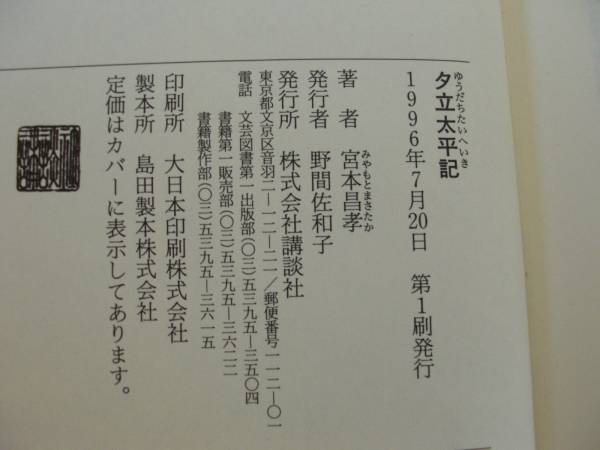 ゆうだちたいへいき
夕立太平記
1996年7月20日 第1刷発行
みやもとまさたか
著者 宮本昌孝
発行者 野間佐和子
発行所 株式会社講談社
東京都文京区音羽二―一二―二一/郵便番号一一二―〇一
電話 文芸図書第一出版部(〇三)五三九五―三五〇四
書籍第一販売部(〇三)五三九五―三六二二
書籍製作部(〇三)五三九五―三六一五
印刷所 大日本印刷株式会社
製本所 島田製本株式会社
定価はカバーに表示してあります。